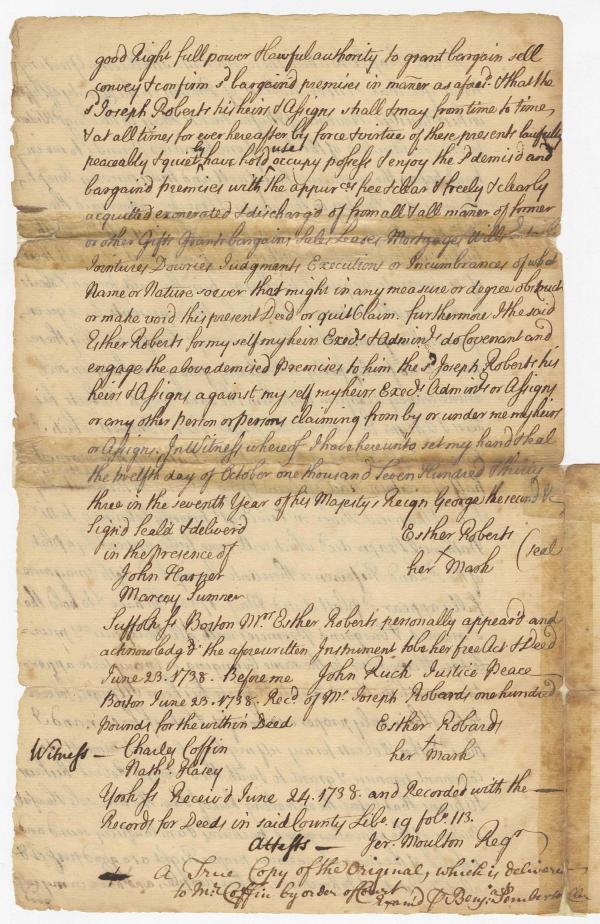 good Right full power & lawful authority to grant bargain sell
convey & confirm sd. bargaind premises in mañer as afored. & that the
sd. Joseph Roberts his heirs & Assigns shall & may from time to time,
& at all times for ever hereafter by force & virtue of these presents lawfully
peaceably & quietly have hold use occupy possess & enjoy the sd demisd and
bargaind premises with the appurces free & clear & freely & clearly
acquitted exonerated & discharg'd of from all & all mañer of former
or other Gifts Grants bargains Sales Leases Mortgages Wills
Jointures Dowries Judgments Executions or Incumbrances of what
Name or Nature soever that might in any measure or degree obstruct
or make void this present Deed or quit Claim. furthermore I the said
Esther Roberts for my self my heirs Execrs. & Adminrs. do Covenant and
engage the above demised Premises to him the sd. Joseph Roberts his
heirs & Assigns against my self my heirs Execrs. Adminrs. or Assigns
or any other person or persons claiming from by or under me my heirs
or Assigns. In Witness whereof I have hereunto set my hand & seal
the twelfth day of October one thousand Seven Hundred & thirty
three in the seventh Year of his Majestys Reign George the second &c
Sign'd Seal'd & deliverd Esther Roberts
in the presence of her + Mark (seal
John Harper
Marcey Sumner
Suffolk ss Boston Mrs. Esther Roberts personally appear'd and
acknowledg'd the aforewritten Instrument to be her free Act & Deed
June 23. 1738. Before me John Ruck Justice Peace
Boston June 23. 1738. Recd. of Mr. Joseph Robards one hundred
pounds for the within Deed Esther Robards
Witness — Charles Coffin her + Mark
Nathl. Kasey
York ss Receiv'd June 24. 1738. and Recorded with the
Records for Deeds in said County Libo. 19 folo. 113.
Attests — Jer. Moulton Regr.
A True Copy of the Original, which is delivered
to Mr. Coffin by order of Court
Examd. P Benj. Pemberton Cler